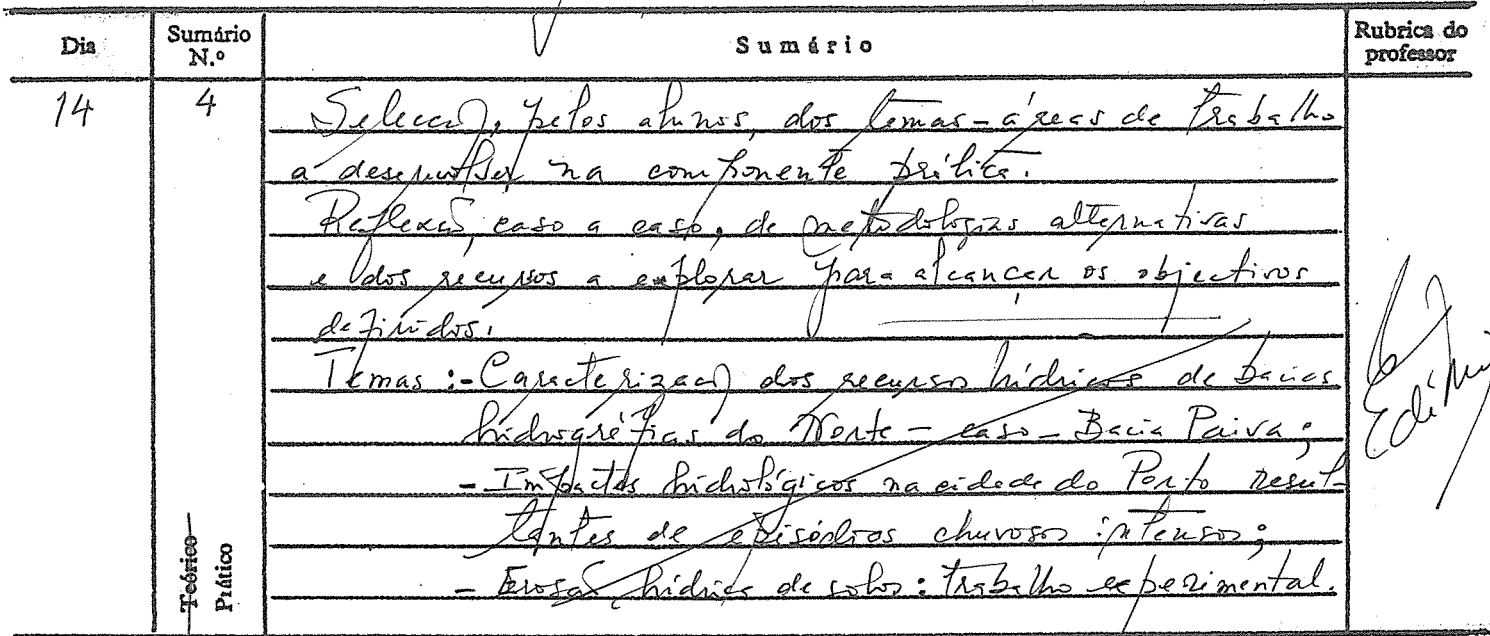 Dia Sumário N.º Sumário Rubrica do professor
14 4 Selecção, pelos alunos, dos temas-áreas de trabalho
a desenvolver na componente prática.
Reflexão, caso a caso, de metodologias alternativas
e dos recursos a explorar para alcançar os objectivos
definidos.
Temas :- Caracterização dos recursos hídricos de bacias
hidrográficas do Norte - caso - Bacia Paiva;
- Impactos hidrológicos na cidade do Porto resul-
tantes de episódios chuvosos intensos;
- Erosão hídrica de solos: trabalho experimental.
Teórico
Prático